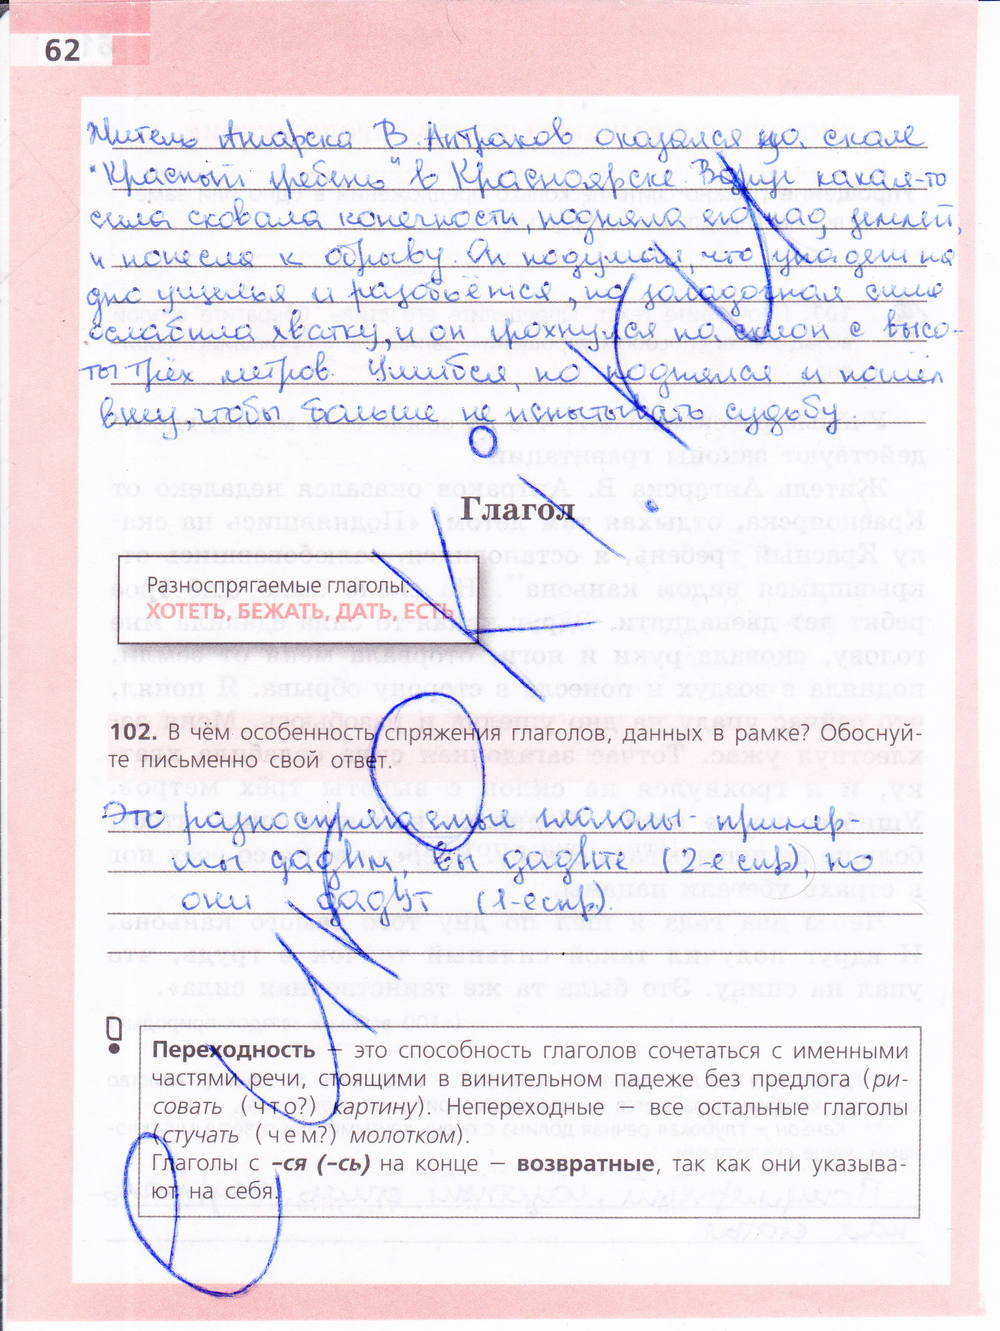 62
Житель Ангарска В. Антраков оказался на скале
"Красный гребень" в Красноярске. Вдруг какая-то
сила сковала конечности, подняла его над землей,
и понесла к обрыву. Он подумал, что упадет на
дно ущелья и разобьётся, но загадочная сила
ослабила хватку, и он грохнулся на склон с высо-
ты трёх метров. Ушибся, но поднялся и пошел
вниз, чтобы больше не испытывать судьбу.
Глагол
Разноспрягаемые глаголы:
ХОТЕТЬ, БЕЖАТЬ, ДАТЬ, ЕСТЬ
102. В чём особенность спряжения глаголов, данных в рамке? Обоснуй-
те письменно свой ответ.
Это разноспрягаемые глаголы- пример
мы дадим, вы дадите (2-е спр), но
они дадут (1-е спр).
Переходность – это способность глаголов сочетаться с именными
частями речи, стоящими в винительном падеже без предлога (ри-
совать (что?) картину). Непереходные – все остальные глаголы
(стучать (чем?) молотком).
Глаголы с –ся (–сь) на конце – возвратные, так как они указыва-
ют на себя.